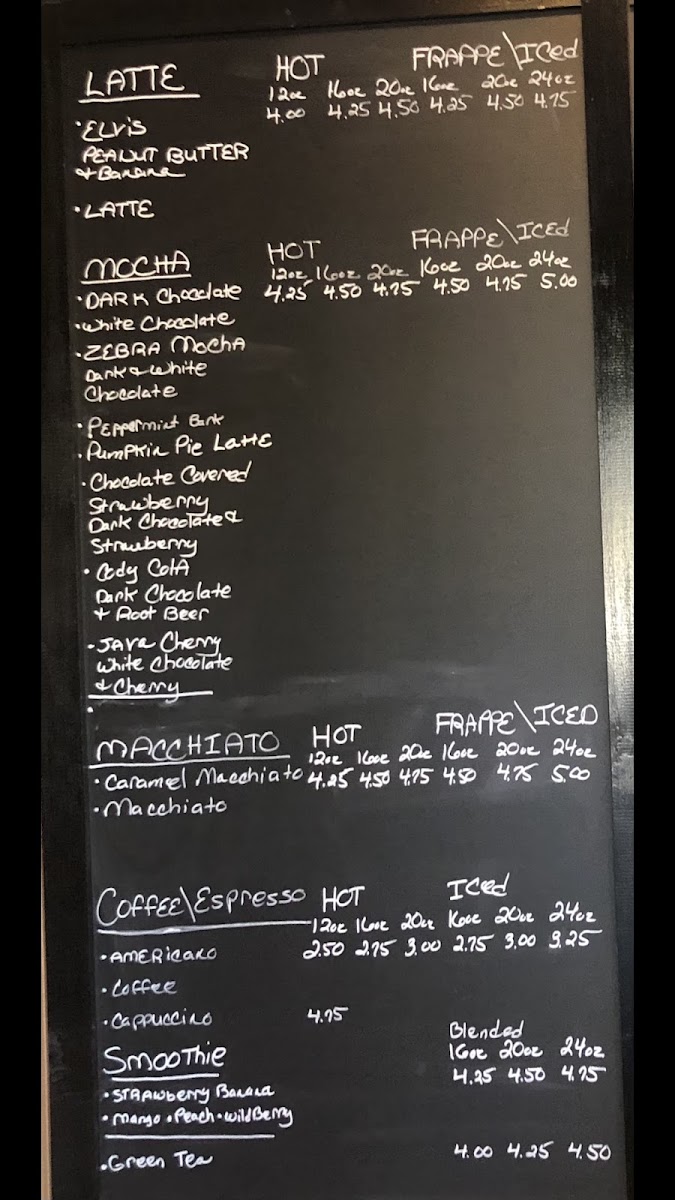 LATTE HOT FRAPPE\Iced
12oz 16oz 20oz 16oz 20oz 24oz
4.00 4.25 4.50 4.25 4.50 4.75
• ELVIS
PEANUT BUTTER
& Banana
• LATTE
MOCHA HOT FRAPPE\ICED
12oz 16oz 20oz 16oz 20oz 24oz
• DARK Chocolate 4.25 4.50 4.75 4.50 4.75 5.00
• White Chocolate
• ZEBRA MochA
Dark & White
Chocolate
• PEppermint Bark
• Pumpkin Pie Latte
• Chocolate Covered
Strawberry
Dark Chocolate &
Strawberry
• Cody ColA
Dark Chocolate
+ Root Beer
• JAVA Cherry
White Chocolate
& Cherry
•
MACCHIATO HOT FRAPPE\ICED
12oz 16oz 20oz 16oz 20oz 24oz
• Caramel Macchiato 4.25 4.50 4.75 4.50 4.75 5.00
• Macchiato
COFFEE\Espresso HOT ICed
12oz 16oz 20oz 16oz 20oz 24oz
• AMERICANO 2.50 2.75 3.00 2.75 3.00 3.25
• Coffee
• Cappuccino 4.75
Blended
Smoothie 16oz 20oz 24oz
4.25 4.50 4.75
• STRAwberry Banana
• Mango • Peach • wildBerry
• Green Tea 4.00 4.25 4.50